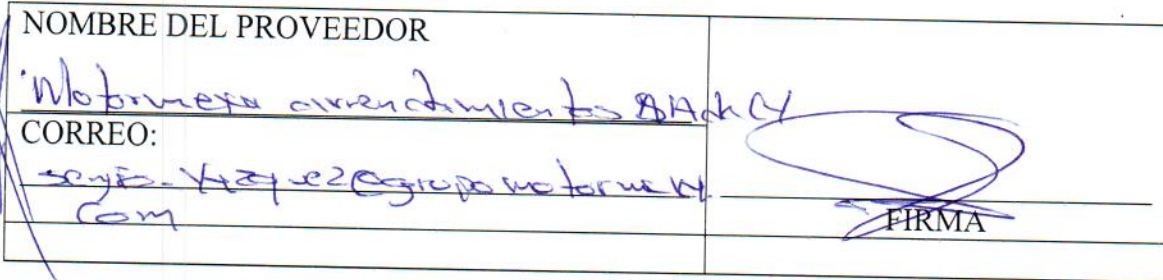 NOMBRE DEL PROVEEDOR
Motormexa arrendamientos SA de CV
CORREO:
sergio.vazquez@grupomotormexa.
com
FIRMA